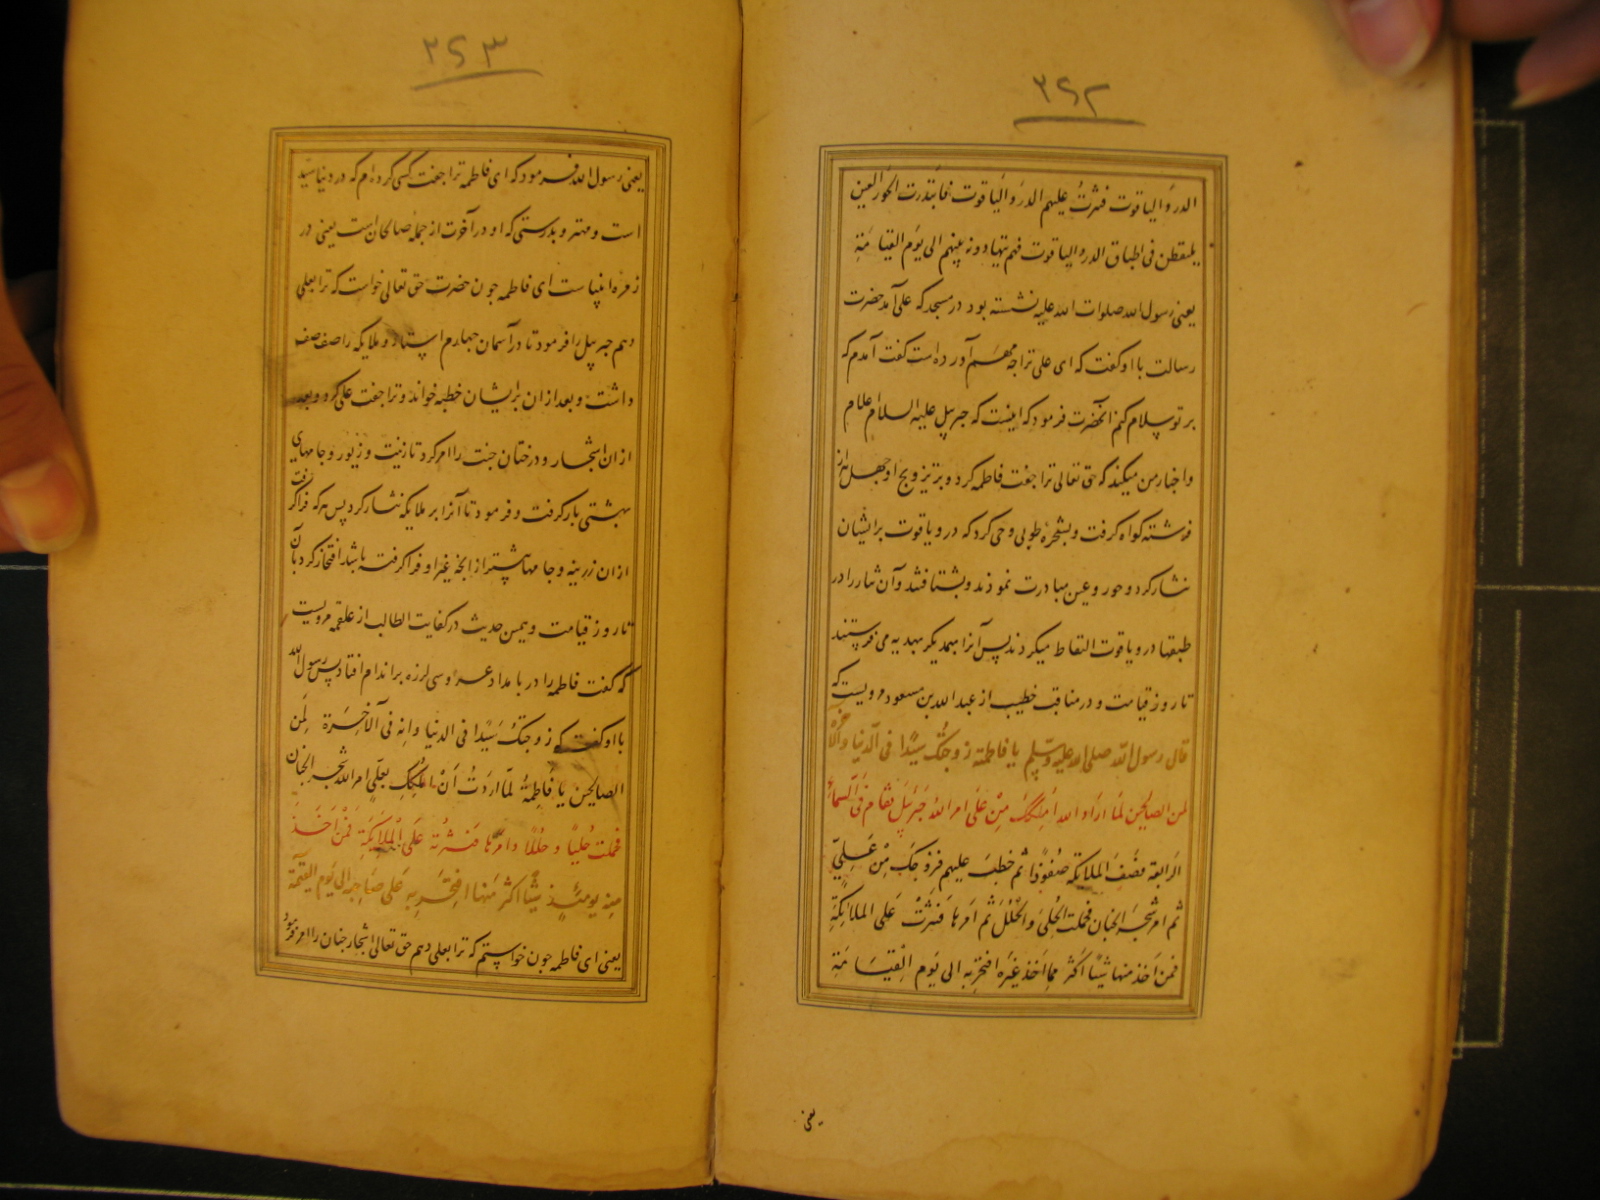 ۲۶۲
الدر والیاقوت فنثرت علیهم الدر والیاقوت فابتدرت الحور العین
یلتقطن فی اطباق الدر والیاقوت فهم یتهادونه بینهم الی یوم القیامة
یعنی رسول الله صلوات الله علیه نشسته بود در مسجد که علی آمد حضرت
رسالت با او کفت که ای علی ترا چه مهم آورده است کفت آمدم که
بر تو سلام کنم انحضرت فرمود که اینست که جبرییل علیه السلام اعلام
واخبار من میکند که حق تعالی ترا جفت فاطمه کرد و بر تزویج او چهل هزار
فرشته کواه کرفت و بشجرهٔ طوبی وحی کرد که در و یاقوت بر ایشان
نثار کرد و حور و عین مبادرت نمودند و بشتافتند وآن نثار را در
طبقها در و یاقوت التقاط میکردند پس آنرا بهمدیکر بهدیه می فرستند
تا روز قیامت و در مناقب خطیب از عبد الله بن مسعود مرویست که
قال رسول الله صلی الله علیه وسلم یا فاطمة زوجتک سیدا فی الدنیا والآخرة
لمن الصالحین لما اراد الله املکک من علی امر الله جبرئیل فقام فی السماء
الرابعة فصف الملائکة صفوفا ثم خطب علیهم فزوجک من علی
ثم امر شجر الجنان فحملت الحلی والحلل ثم امرها فنثرت علی الملائکة
فمن اخذ منها شیئا اکثر مما اخذ غیره افتخر به الی یوم القیامة
یعنی
۲۶۳
یعنی رسول الله فرمود که ای فاطمه ترا جفت کسی کرده ام که در دنیا سید
است و مهتر و بدرستی که او در آخرت از جمله صالحان است یعنی در
زمره انبیاست ای فاطمه چون حضرت حق تعالی خواست که ترا بعلی
دهم جبرییل را فرمود تا در آسمان چهارم استاد و ملایکه را صف صف
داشت و بعد ازان بر ایشان خطبه خواند و ترا جفت علی کرد و بعد
ازان اشجار و درختان جنت را امر کرد تا زینت و زیور و جامهای
بهشتی بار کرفت و فرمود تا آنرا بر ملایکه نثار کرد پس هر که فرا کرفت
ازان زرینه و جامها بیشتر از انچه غیر او فرا کرفته باشد افتخار کرد بآن
تا روز قیامت و همین حدیث در کفایت الطالب از علقمه مرویست
که کفت فاطمه را در بامداد عروسی لرزه بر اندام افتاد پس رسول الله
با او کفت که زوجتک سیدا فی الدنیا وانه فی الآخرة لمن
الصالحین یا فاطمة لما اردت ان املکک بعلی امر الله شجر الجنان
فحملت حلیا و حللا وامرها فنثرته علی الملایکة فمن اخذ
منه یومئذ شیئا اکثر منها افتخر به علی صاحبه الی یوم القیمة
یعنی ای فاطمه چون خواستم که ترا بعلی دهم حق تعالی اشجار جنان را امر فرمود